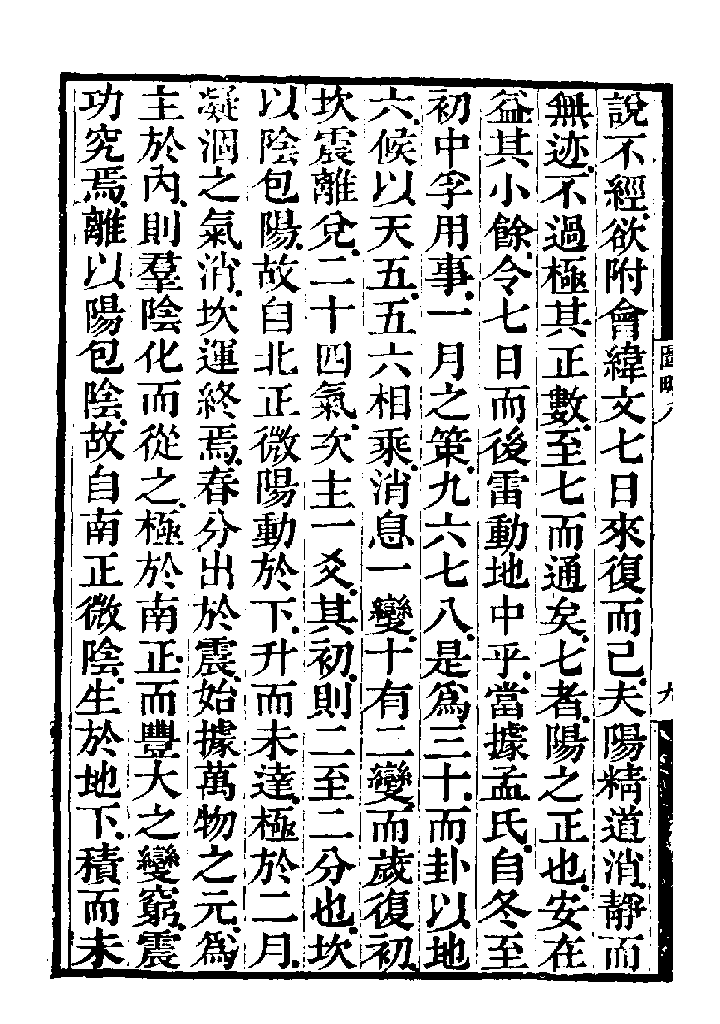 說不經欲附會緯文七日來復而己夫陽精道消靜而
無迹不過極其正數至七而通矣七者陽之正也安在
益其小餘令七日而後雷動地中乎當據孟氏自冬至
初中孚用事一月之策九六七八是爲三十而卦以地
六候以天五五六相乘消息一變十有二變而歲復初
坎震離兌二十四氣次主一爻其初則二至二分也坎
以陰包陽故自北正微陽動於下升而未達極於二月
凝涸之氣消坎運終焉春分出於震始據萬物之元爲
主於內則羣陰化而從之極於南正而豐大之變窮震
功究焉離以陽包陰故自南正微陰生於地下積而未
圖明八
九